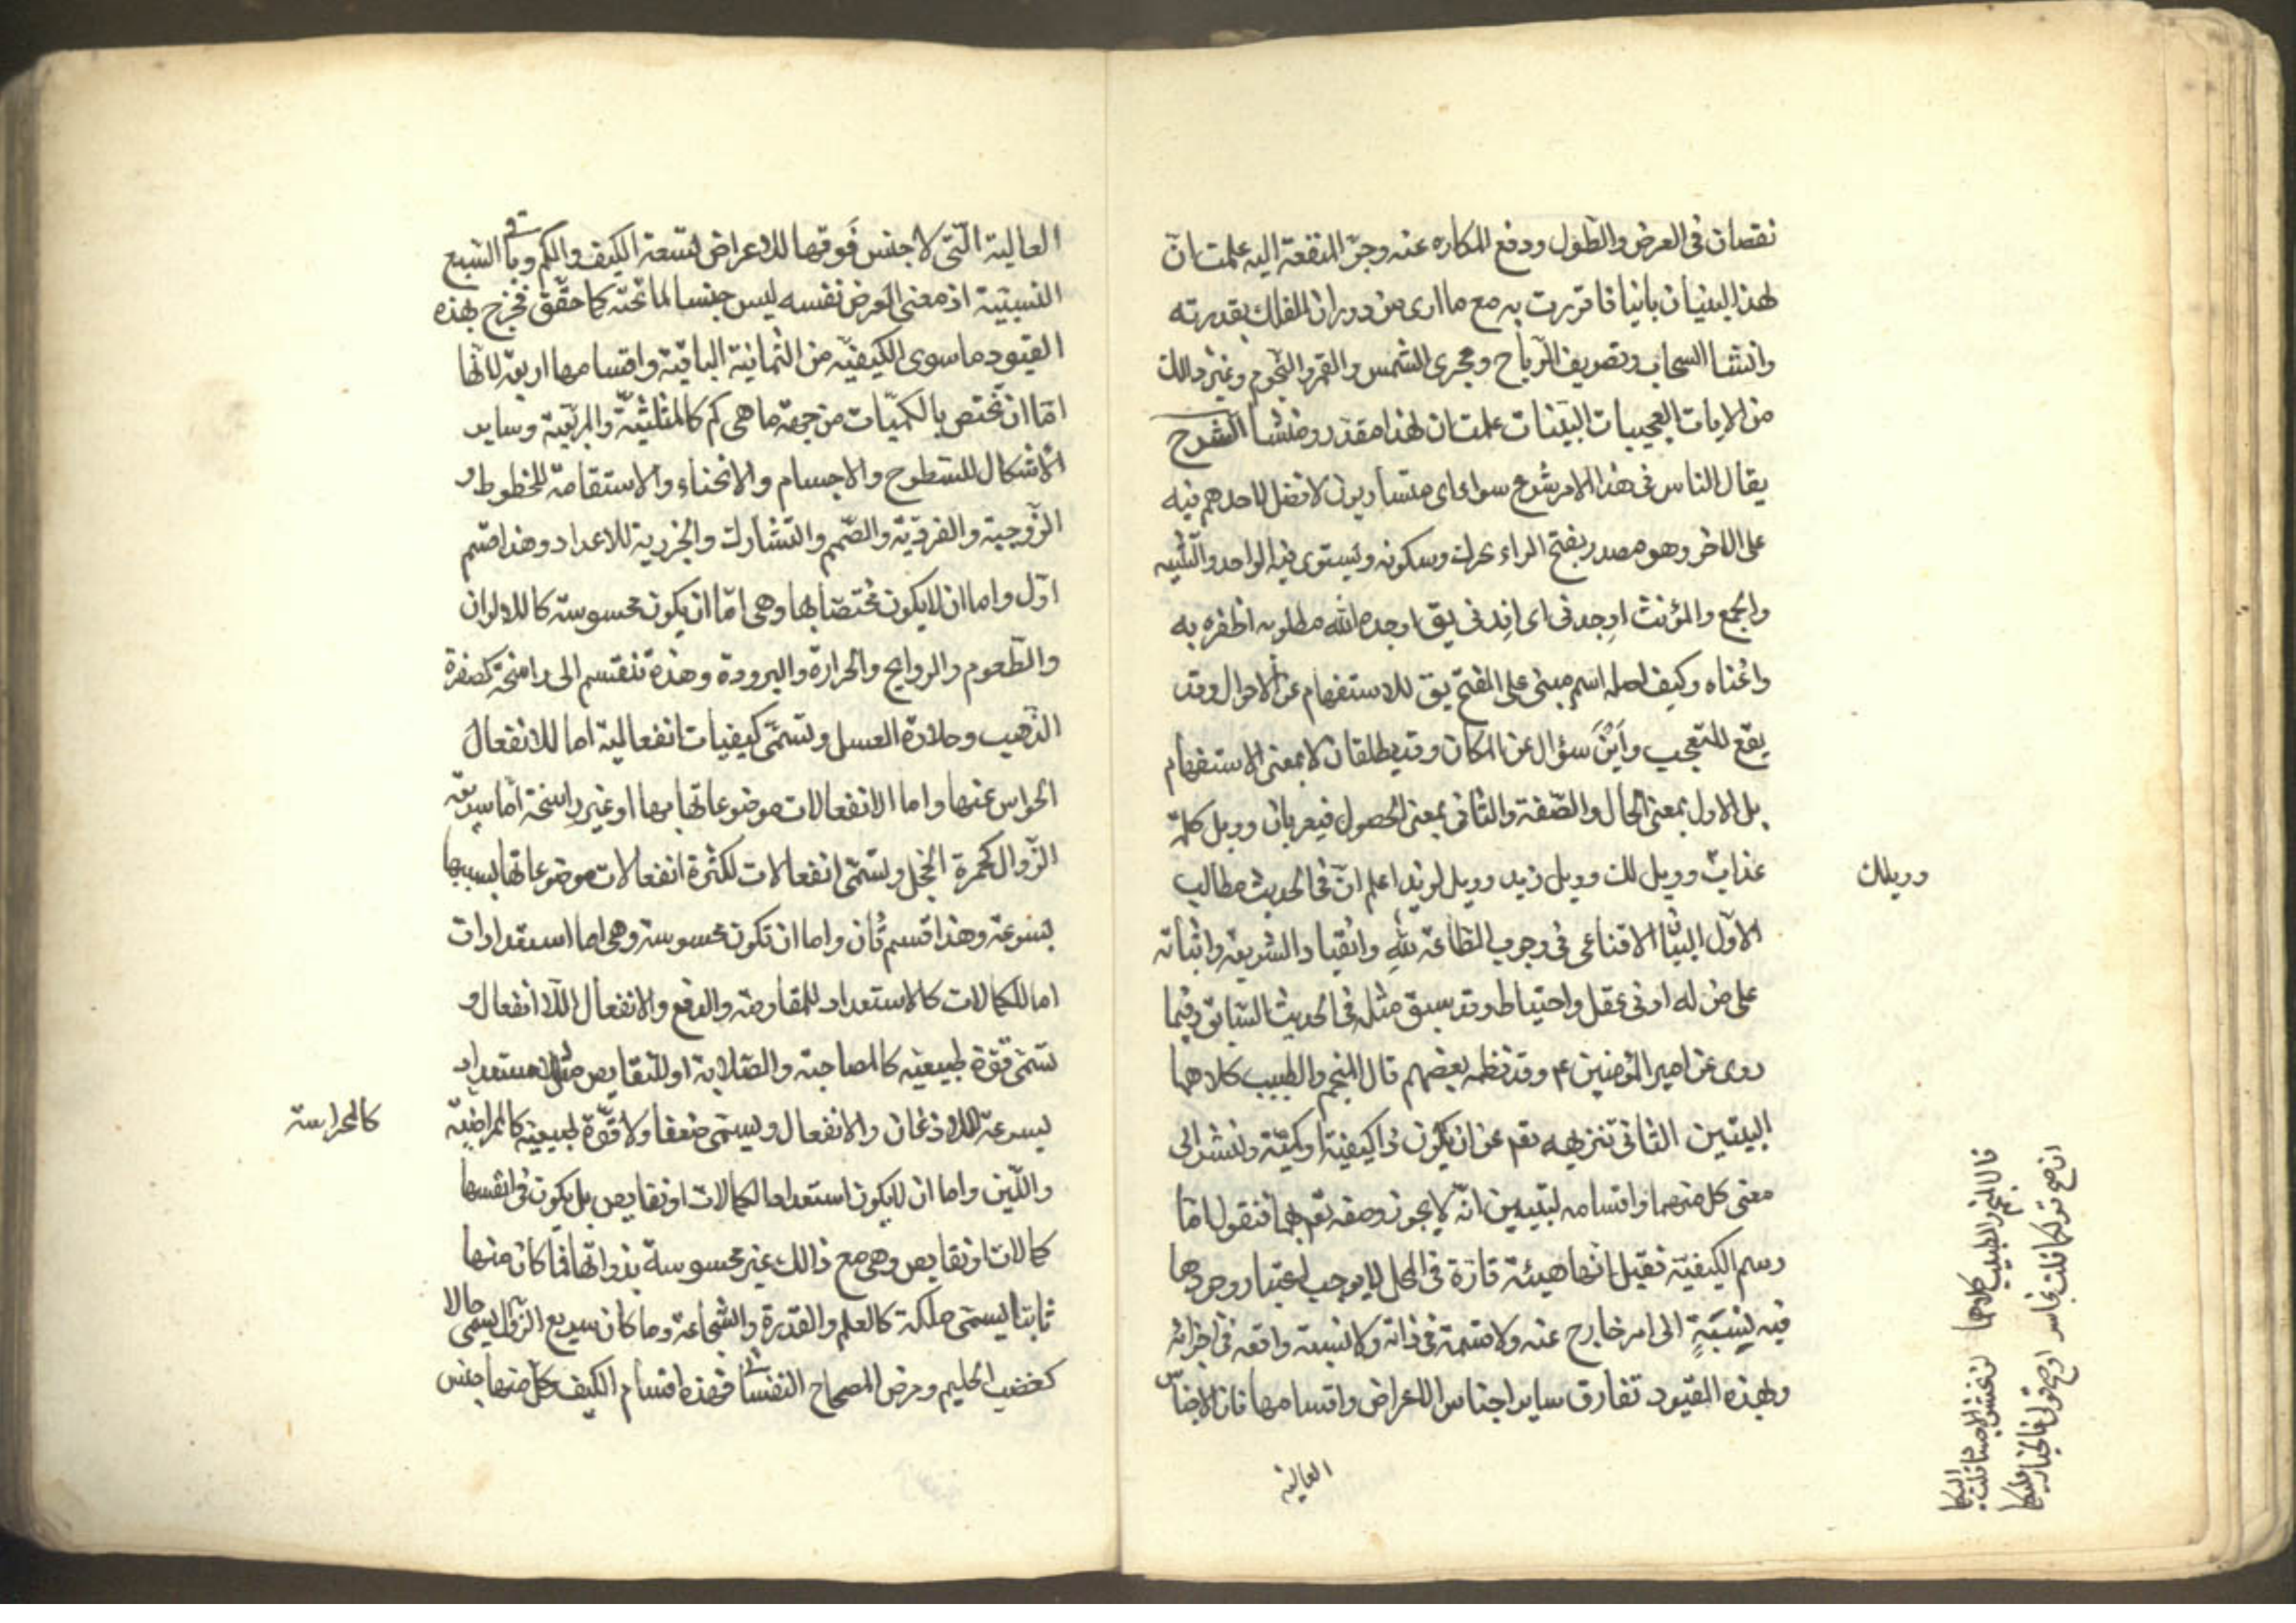 نقصان فى العرض والطول ودفع المكاره عنه وجرّ المنفعة اليه علمت انّ
لهذا البنيان بانيا فاقررت به مع ما ارى من دوران الفلك بقدرته
وانشا السحاب وتصريف الرياح ومجرى الشمس والقمر والنجوم وغير ذالك
من الايات العجيبات البينات علمت ان لهذا مقدّر ومنشأ الشرح
يقال الناس فى هذا الامر شرع سواء اى متساويون لا فضل لاحدهم فيه
على الاخر وهو مصدر بفتح الراء يحرك وسكونه ويستوى فيه الواحد والتثنيه
والجمع والمؤنث اوجدنى اى افدنى يق اوجده الله مطلوبه اظفره به
واغناه وكيف اسم مبنى على الفتح يق للاستفهام عن الاحوال وقد
يقع للتعجب واين سؤال عن المكان وقد يطلقان لا بمعنى الاستفهام
بل الاول بمعنى الحال والصّفة والثانى بمعنى الحصول فيعربان وويل كلمة
عذاب وويل لك وويل زيد وويل لزيد اعلم انّ فى الحديث مطالب
وويلك
الاوّل البيان الاقناعى فى وجوب الطاعة لله وانقياد الشريعة واثباته
على من له ادنى عقل واحتياط وقد سبق مثله فى الحديث السّابق وفيما
روى عن امير المؤمنين ع وقد نظمه بعضهم قال المنجم والطبيب كلاهما
البيتين الثانى تنزيهه تعم عن ان يكون ذا كيفية او كميّة ولنشر الى
معنى كل منهما واقسامه لتبيين انّه لا يجوز وصفه تعم بهما فنقول امّا
رسم الكيفيّة فقيل انّها هيئة قارّة فى المحل لا يوجب اعتبار وجودها
فيه نسبةٍ الى امر خارج عنه ولا قسمة فى ذاته ولا نسبة واقعه فى اجزائه
وبهذه القيود تفارق ساير اجناس الاعراض واقسامها فان الاجناس
العالية
قال المنجم والطبيب كلاهما لن تحشر الاجساد قلت اليكما
ان صح قولكما فلست بخاسر او صح قولى فالخسار عليكما
العالية الّتى لا جنس فوقها للاعراض تسعة الكيف والكم وباقى السبع
النسبيّة اذ معنى العرض نفسه ليس جنسا لما تحته كما حقّق فخرج بهذه
القيود ما سوى الكيفيّه من الثمانية الباقية واقسامها اربعة لانّها
امّا ان تختص بالكميّات من جهة ما هى كم كالمثلثيّة والمربّعية وساير
الاشكال للسّطوح والاجسام والانحناء والاستقامة للخطوط و
الزّوجية والفرديّة والصّمم والتشارك والجذرية للاعداد وهذا قسم
اوّل واما ان لا يكون مختصّا بها وهى امّا ان يكون محسوسة كالالوان
والطّعوم والروايح والحرارة والبرودة وهذه تنقسم الى راسخة كصفرة
الذّهب وحلاوة العسل وتسمّى كيفيات انفعالية اما للانفعال
الحواس عنها واما الانفعالات موضوعاتها بها او غير راسخة امّا سريعة
الزّوال كحمرة الخجل وتسمّى انفعالات لكثرة انفعالات موضوعاتها بسببها
بسرعة وهذا قسم ثان واما ان تكون محسوسة وهى اما استعدادات
اما للكمالات كالاستعداد للمقاومة والدفع والانفعال اللاانفعال و
تسمّى قوّة طبيعيّه كالمصاحبّة والصّلابة او للنقايص مثل الاستعداد
بسرعة الاذعان والانفعال ويسمّى ضعفا ولا قوّة طبيعية كالمراضيّة
كالحراسة
واللّين واما ان لا يكون استعدادا لكمالات او نقايص بل يكون فى انفسها
كمالات او نقايص وهى مع ذالك غير محسوسة بذواتها فما كان منها
ثابتا يسمى ملكة كالعلم والقدرة والشّجاعة وما كان سريع الزوال يسمّى حالا
كغضب الحليم ومرض المصحاح النفسا فهذه اقسام الكيف وكلّ منها جنس